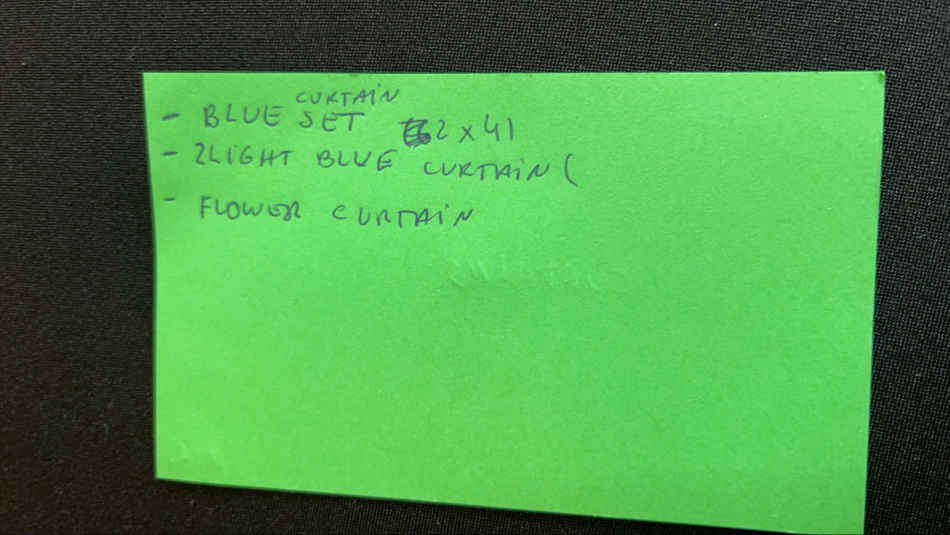 CURTAIN
- BLUE SET 2x41
- 2LIGHT BLUE CURTAIN (
- FLOWER CURTAIN